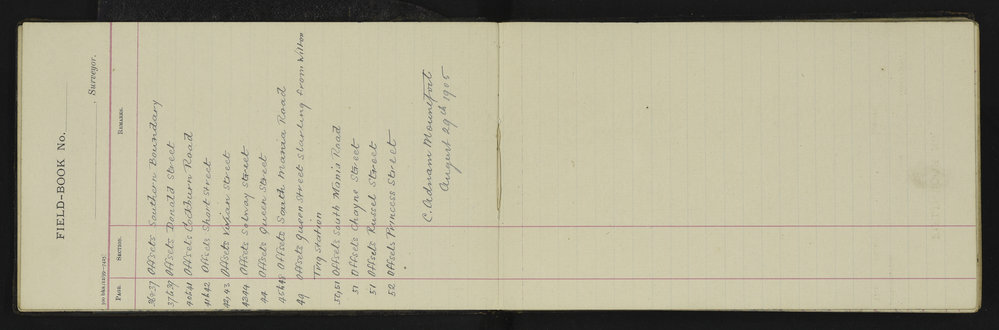 FIELD-BOOK No.
, Surveyor.
PAGE. SECTION. REMARKS.
36 & 37 Offsets Southern Boundary
37 to 39 Offsets Donald Street
40 & 41 Offsets Cockburn Road
41 & 42 Offsets Short Street
42, 43 Offsets Vivian Street
43 44 Offsets Solway Street
44 Offsets Queen Street
45 to 48 Offsets South Mania Road
49 Offsets Queen Street starting from Wilton
Trig Station
50, 51 Offsets South Mania Road
51 Offsets Chayne Street
51 Offsets Russel Street
52 Offsets Princess Street
C. Adnam Mountfort
August 29th 1905